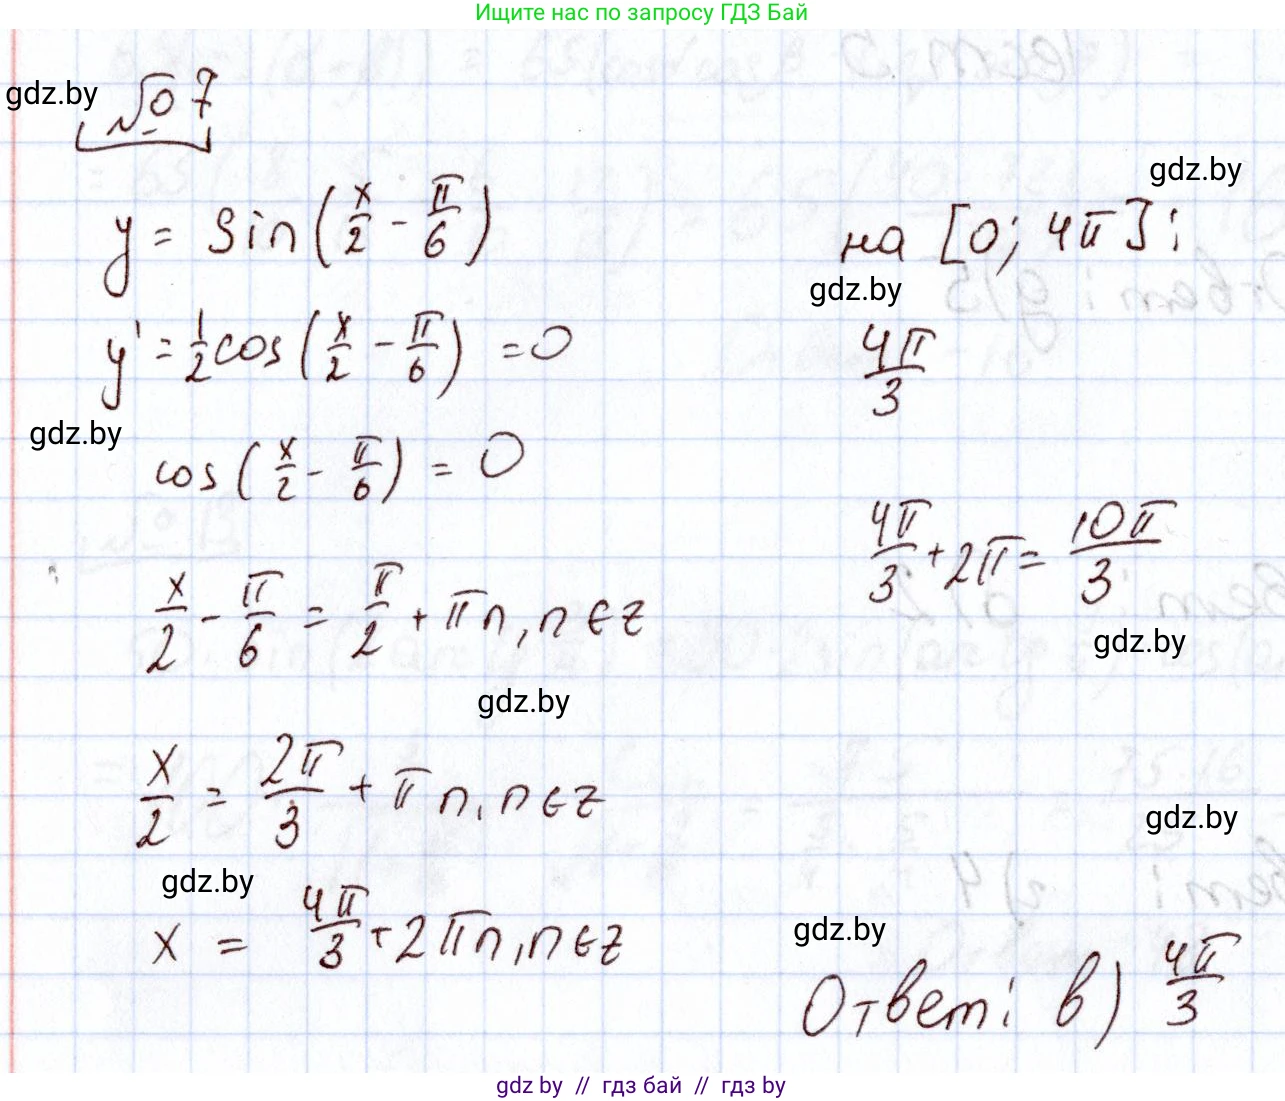 Ищите нас по запросу ГДЗ Бай
gdz.by
№ 7
gdz.by
y = Sin(x/2 - π/6)
на [0; 4π]:
gdz.by
y' = 1/2 cos(x/2 - π/6) = 0
4π/3
gdz.by
cos(x/2 - π/6) = 0
4π/3 + 2π = 10π/3
x/2 - π/6 = π/2 + πn, n ∈ z
gdz.by
gdz.by
x/2 = 2π/3 + πn, n ∈ z
gdz.by
gdz.by
x = 4π/3 + 2πn, n ∈ z
gdz.by
Ответ: в) 4π/3
gdz by // гдз бай // гдз by